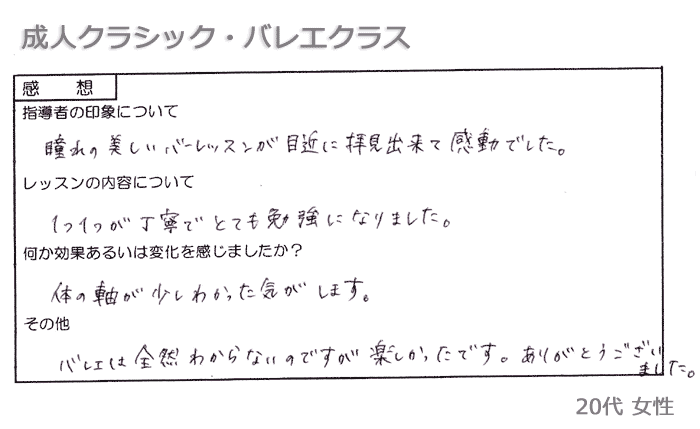 成人クラシック・バレエクラス
感 想
指導者の印象について
瞳れの美しいバーレッスンが目近に拝見出来て感動でした。
レッスンの内容について
1つ1つが丁寧でとても勉強になりました。
何か効果あるいは変化を感じましたか?
体の軸が少しわかった気がします。
その他
バレエは全然わからないのですが楽しかったです。ありがとうござい
ました。
20代 女性